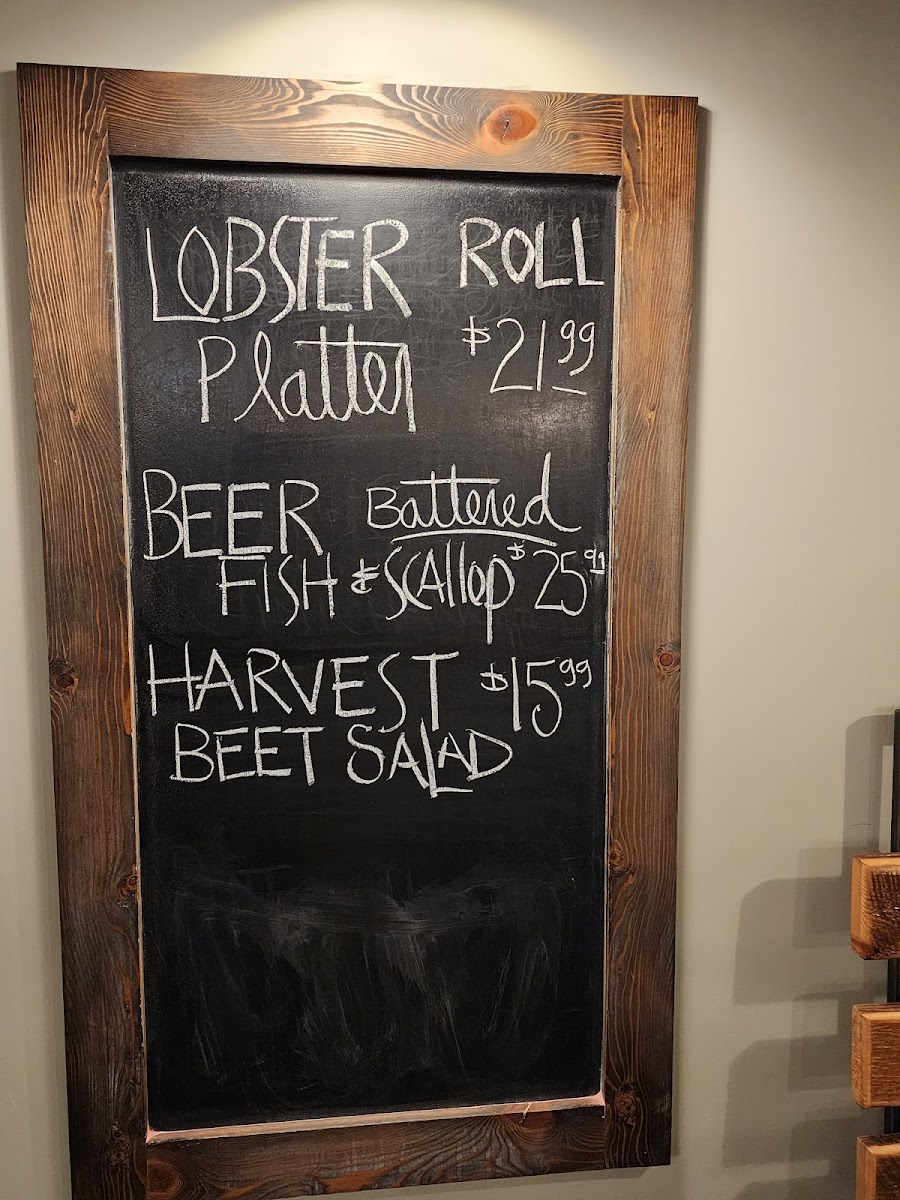 LOBSTER ROLL
Platter $21.99
BEER Battered
FISH & SCAllop $25.99
HARVEST $15.99
BEET SALAD